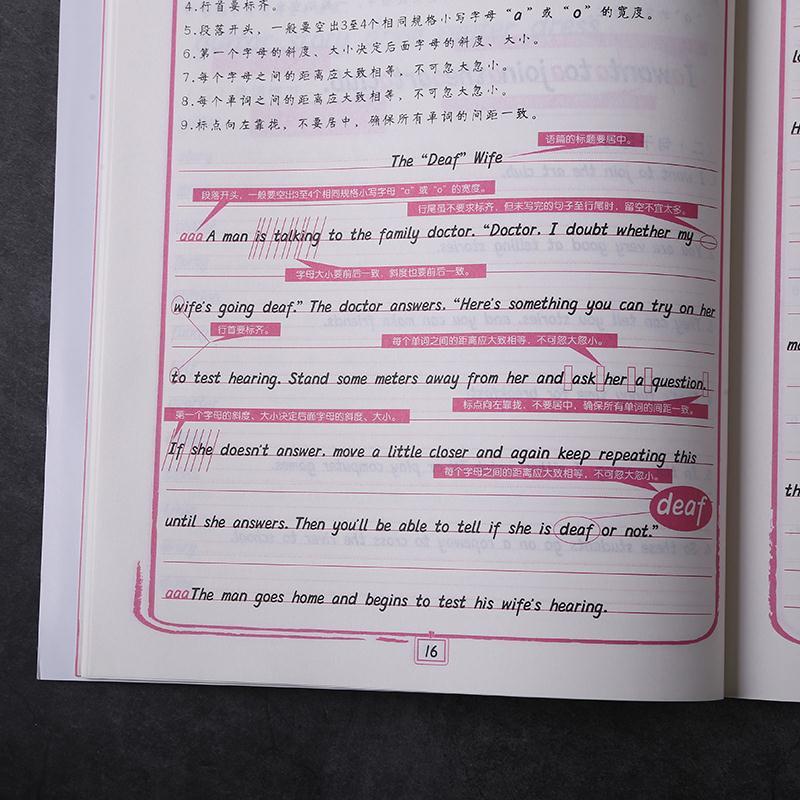 4.行首要标齐。
5.段落开头，一般要空出3至4个相同规格小写字母“a”或“o”的宽度。
6.第一个字母的斜度、大小决定后面字母的斜度、大小。
7.每个字母之间的距离应大致相等，不可忽大忽小。
8.每个单词之间的距离应大致相等，不可忽大忽小。
9.标点向左靠拢，不要居中，确保所有单词的间距一致。
语篇的标题要居中。
The “Deaf” Wife
段落开头，一般要空出3至4个相同规格小写字母“a”或“o”的宽度。
行尾虽不要求标齐，但未写完的句子至行尾时，留空不宜太多。
aaa A man is talking to the family doctor. “Doctor. I doubt whether my
字母大小要前后一致，斜度也要前后一致。
wife's going deaf.” The doctor answers. “Here's something you can try on her
行首要标齐。
每个单词之间的距离应大致相等，不可忽大忽小。
to test hearing. Stand some meters away from her and ask her a question.
标点向左靠拢，不要居中，确保所有单词的间距一致。
第一个字母的斜度、大小决定后面字母的斜度、大小。
If she doesn't answer. move a little closer and again keep repeating this
每个字母之间的距离应大致相等，不可忽大忽小。
deaf
until she answers. Then you'll be able to tell if she is deaf or not.”
aaa The man goes home and begins to test his wife's hearing.
16